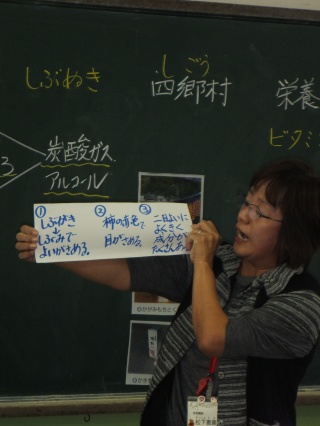 しぶぬき
しごう
四郷村
栄養
ビタミ
炭酸ガス
アルコール
3
①
しぶがき
↓
しぶみで
よいがさめる。
②
柿の赤色で
目がさめる。
③
二日よいに
よくきく
成分が
たくさんある